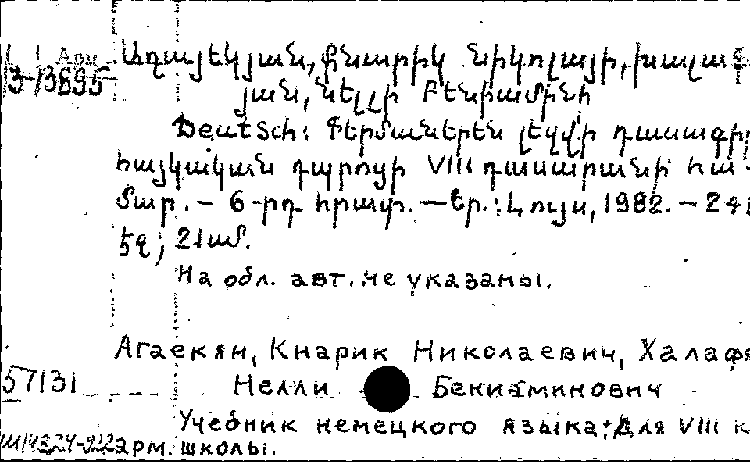 Աղայեկյան, Քնարիկ Նիկոլայի, խալաֆ
3-13695
յան, Նելլի Բենիամինի
Deutsch: Գերմաներեն լեզվի դասագիր
հայկական դպրոցի VIII դասարանի հա-
մար. — 6-րդ հրատ. — Եր.: Լույս, 1982. —
էջ; 21սմ.
На обл. авт. не указаны.
Агаекян, Кнарик Николаевич, Халафя
57131
Нелли Бениаминович
Учебник немецкого языка: Для VIII к
арм. школы.